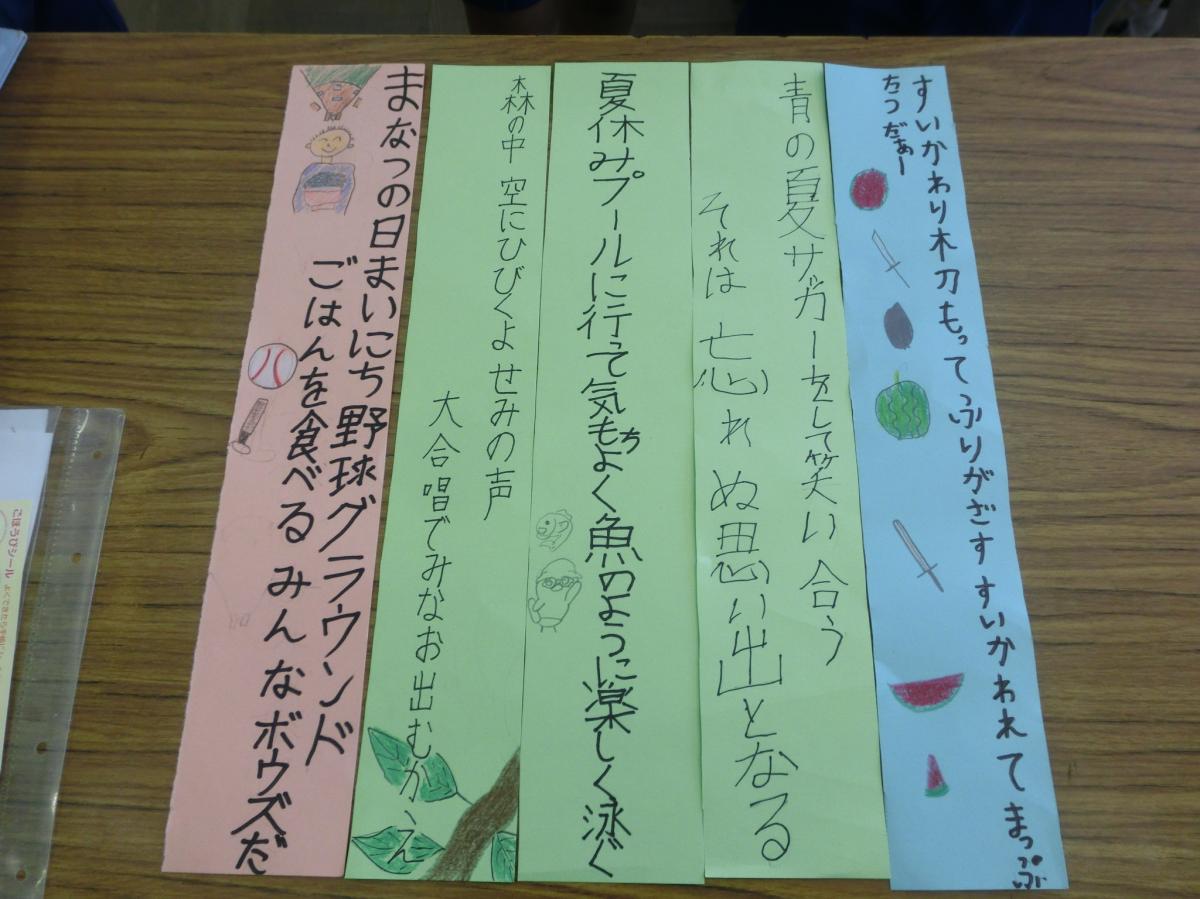 すいかわり木刀もってふりがざすすいかわれてまっぷ
たつだぁー
青の夏サッカーをして笑い合う
それは忘れぬ思い出となる
夏休みプールに行って気もちよく魚のように楽しく泳ぐ
森の中 空にひびくよ せみの声
大合唱でみなお出むかえ
まなつの日まいにち野球グラウンド
ごはんを食べるみんなボウズだ
ごほうびシール